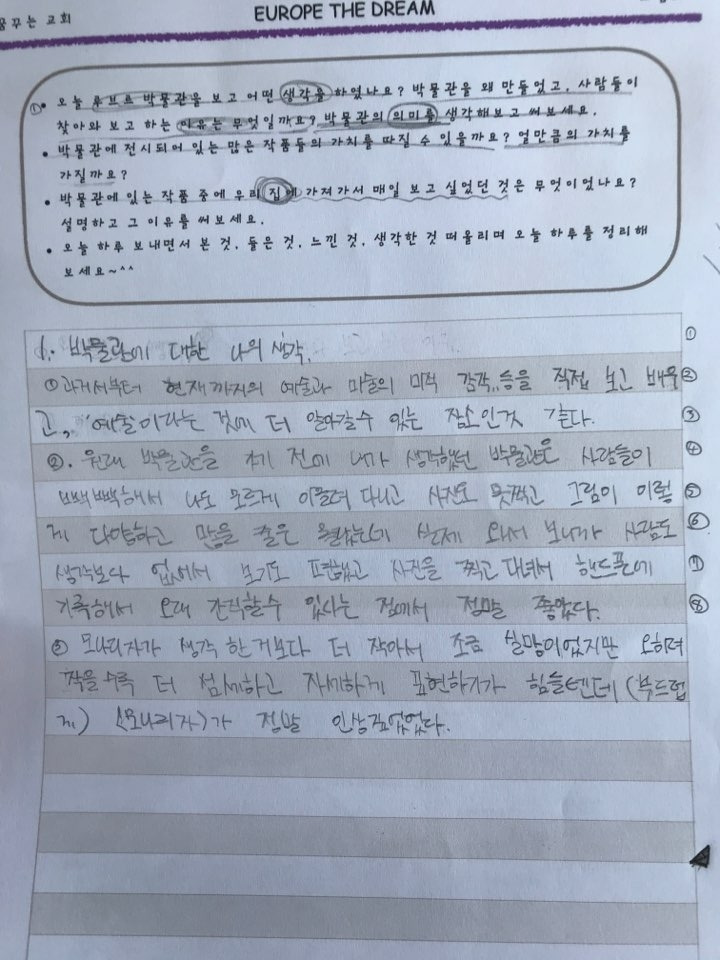 꿈꾸는 교회
EUROPE THE DREAM
① • 오늘 루브르 박물관을 보고 어떤 생각을 하였나요? 박물관을 왜 만들었고, 사람들이
찾아와 보고 하는 이유는 무엇일까요? 박물관의 의미를 생각해보고 써보세요.
• 박물관에 전시되어 있는 많은 작품들의 가치를 따질 수 있을까요? 얼만큼의 가치를
가질까요?
• 박물관에 있는 작품 중에 우리 집에 가져가서 매일 보고 싶었던 것은 무엇이었나요?
설명하고 그 이유를 써보세요.
• 오늘 하루 보내면서 본 것, 들은 것, 느낀 것, 생각한 것 떠올리며 오늘 하루를 정리해
보세요~^^
1. 박물관에 대한 나의 생각. ①
① 과거서부터 현재까지의 예술과 미술의 미적 감각..등을 직접 보고 배우 ②
고, '예술'이라는 것에 더 알아갈수 있는 장소인것 같다. ③
②. 원래 박물관을 오기 전에 내가 생각했던 박물관은 사람들이 ④
빽빽해서 나도 모르게 이끌려 다니고 사진도 못찍고 그림이 이렇 ⑤
게 다양하고 많을 줄은 몰랐는데 실제 와서 보니까 사람도 ⑥
생각보다 없어서 보기도 편했고 사진을 찍고 핸드폰에 ⑦
기록해서 오래 간직할수 있다는 점에서 정말 좋았다. ⑧
③ 모나리자가 생각 한거보다 더 작아서 조금 실망이었지만 오히려
작을수록 더 섬세하고 자세하게 표현하기가 힘들텐데 (부드럽
게) <모나리자>가 정말 인상적이었다.